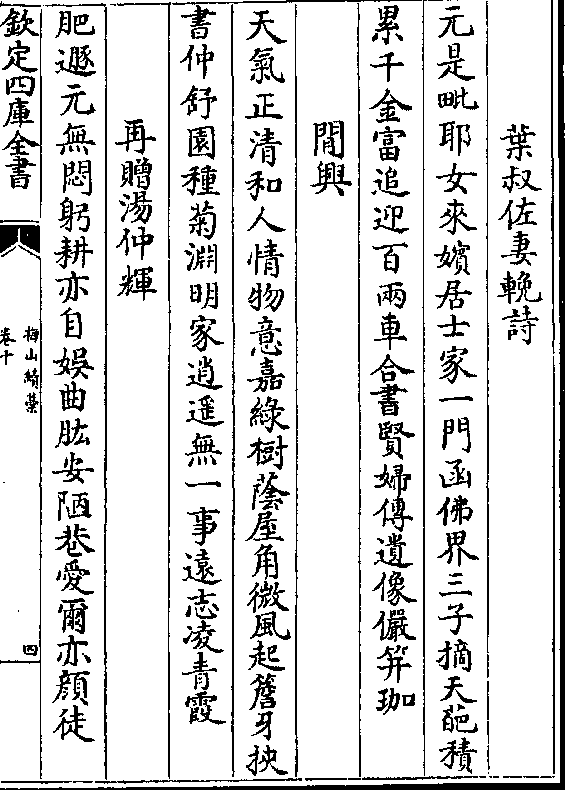 葉叔佐妻輓詩
元是毗耶女來嬪居士家一門函佛界三子摘天葩積
累千金富追迎百兩車合書賢婦傳遺像儼笄珈
閒興
天氣正清和人情物意嘉綠樹蔭屋角微風起簷牙挾
書仲舒園種菊淵明家逍遥無一事遠志凌青霞
再贈湯仲輝
肥遯元無悶躬耕亦自娛曲肱安陋巷愛爾亦顔徒
欽定四庫全書
梅山續藁
卷十
四